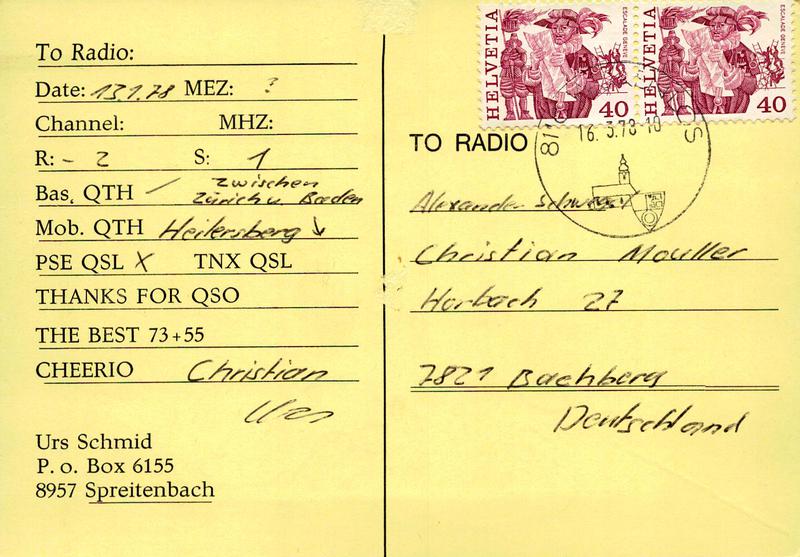 To Radio:
Date: 13.1.78 MEZ: ?
Channel: MHZ:
R: - 2 S: 1
Bas. QTH / zwischen
Zürich u. Baden
Mob. QTH Heitersberg ↘
PSE QSL X TNX QSL
THANKS FOR QSO
THE BEST 73+55
CHEERIO Christian
Urs
Urs Schmid
P. o. Box 6155
8957 Spreitenbach
HELVETIA
ESCALADE GENÈVE
40
HELVETIA
ESCALADE GENÈVE
40
16.3.78-10
TO RADIO
Alexander
Christian Mouller
Horbach 27
7821 Bachberg
Deutschland